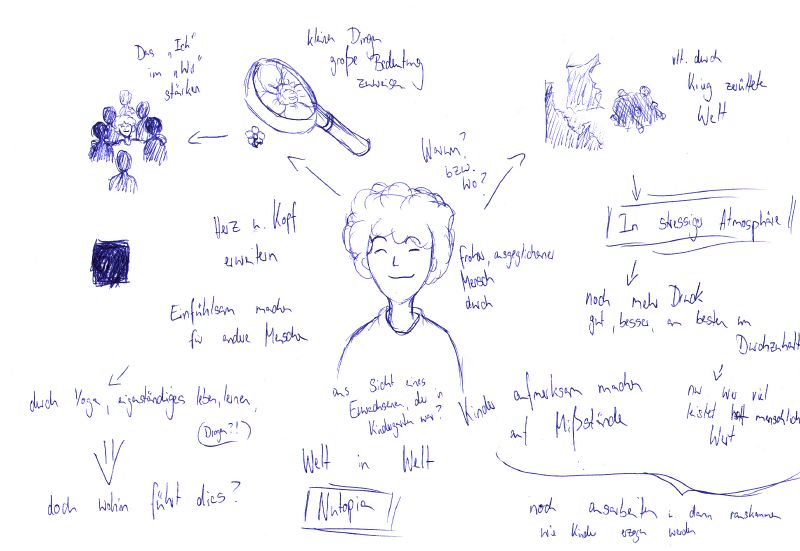 Das "Ich"
im "Wir"
stärken
kleinen Dingen
große Bedeutung
zuweisen
Warum?
bzw.
Wo?
vllt. durch
Krieg zerüttete
Welt
In stressiger Atmosphäre
Herz u. Kopf
erweitern
Froher, ausgeglichener
Mensch
durch
noch mehr Druck
gut, besser, am besten im
Durchzuhalt
Einfühlsam machen
für andere Menschen
durch Yoga, eigenständiges leben, lernen,
(Drogen?!)
doch wohin führt dies?
aus Sicht eines
Erwachsenen, der in
Kindergarten war?
Kinder aufmerksam machen
auf Mißstände
nur wer viel
leistet hat menschlich
Wert
Welt in Welt
Nutopia
noch ausarbeiten u. dann rauskommen
wie Kinder erzogen werden